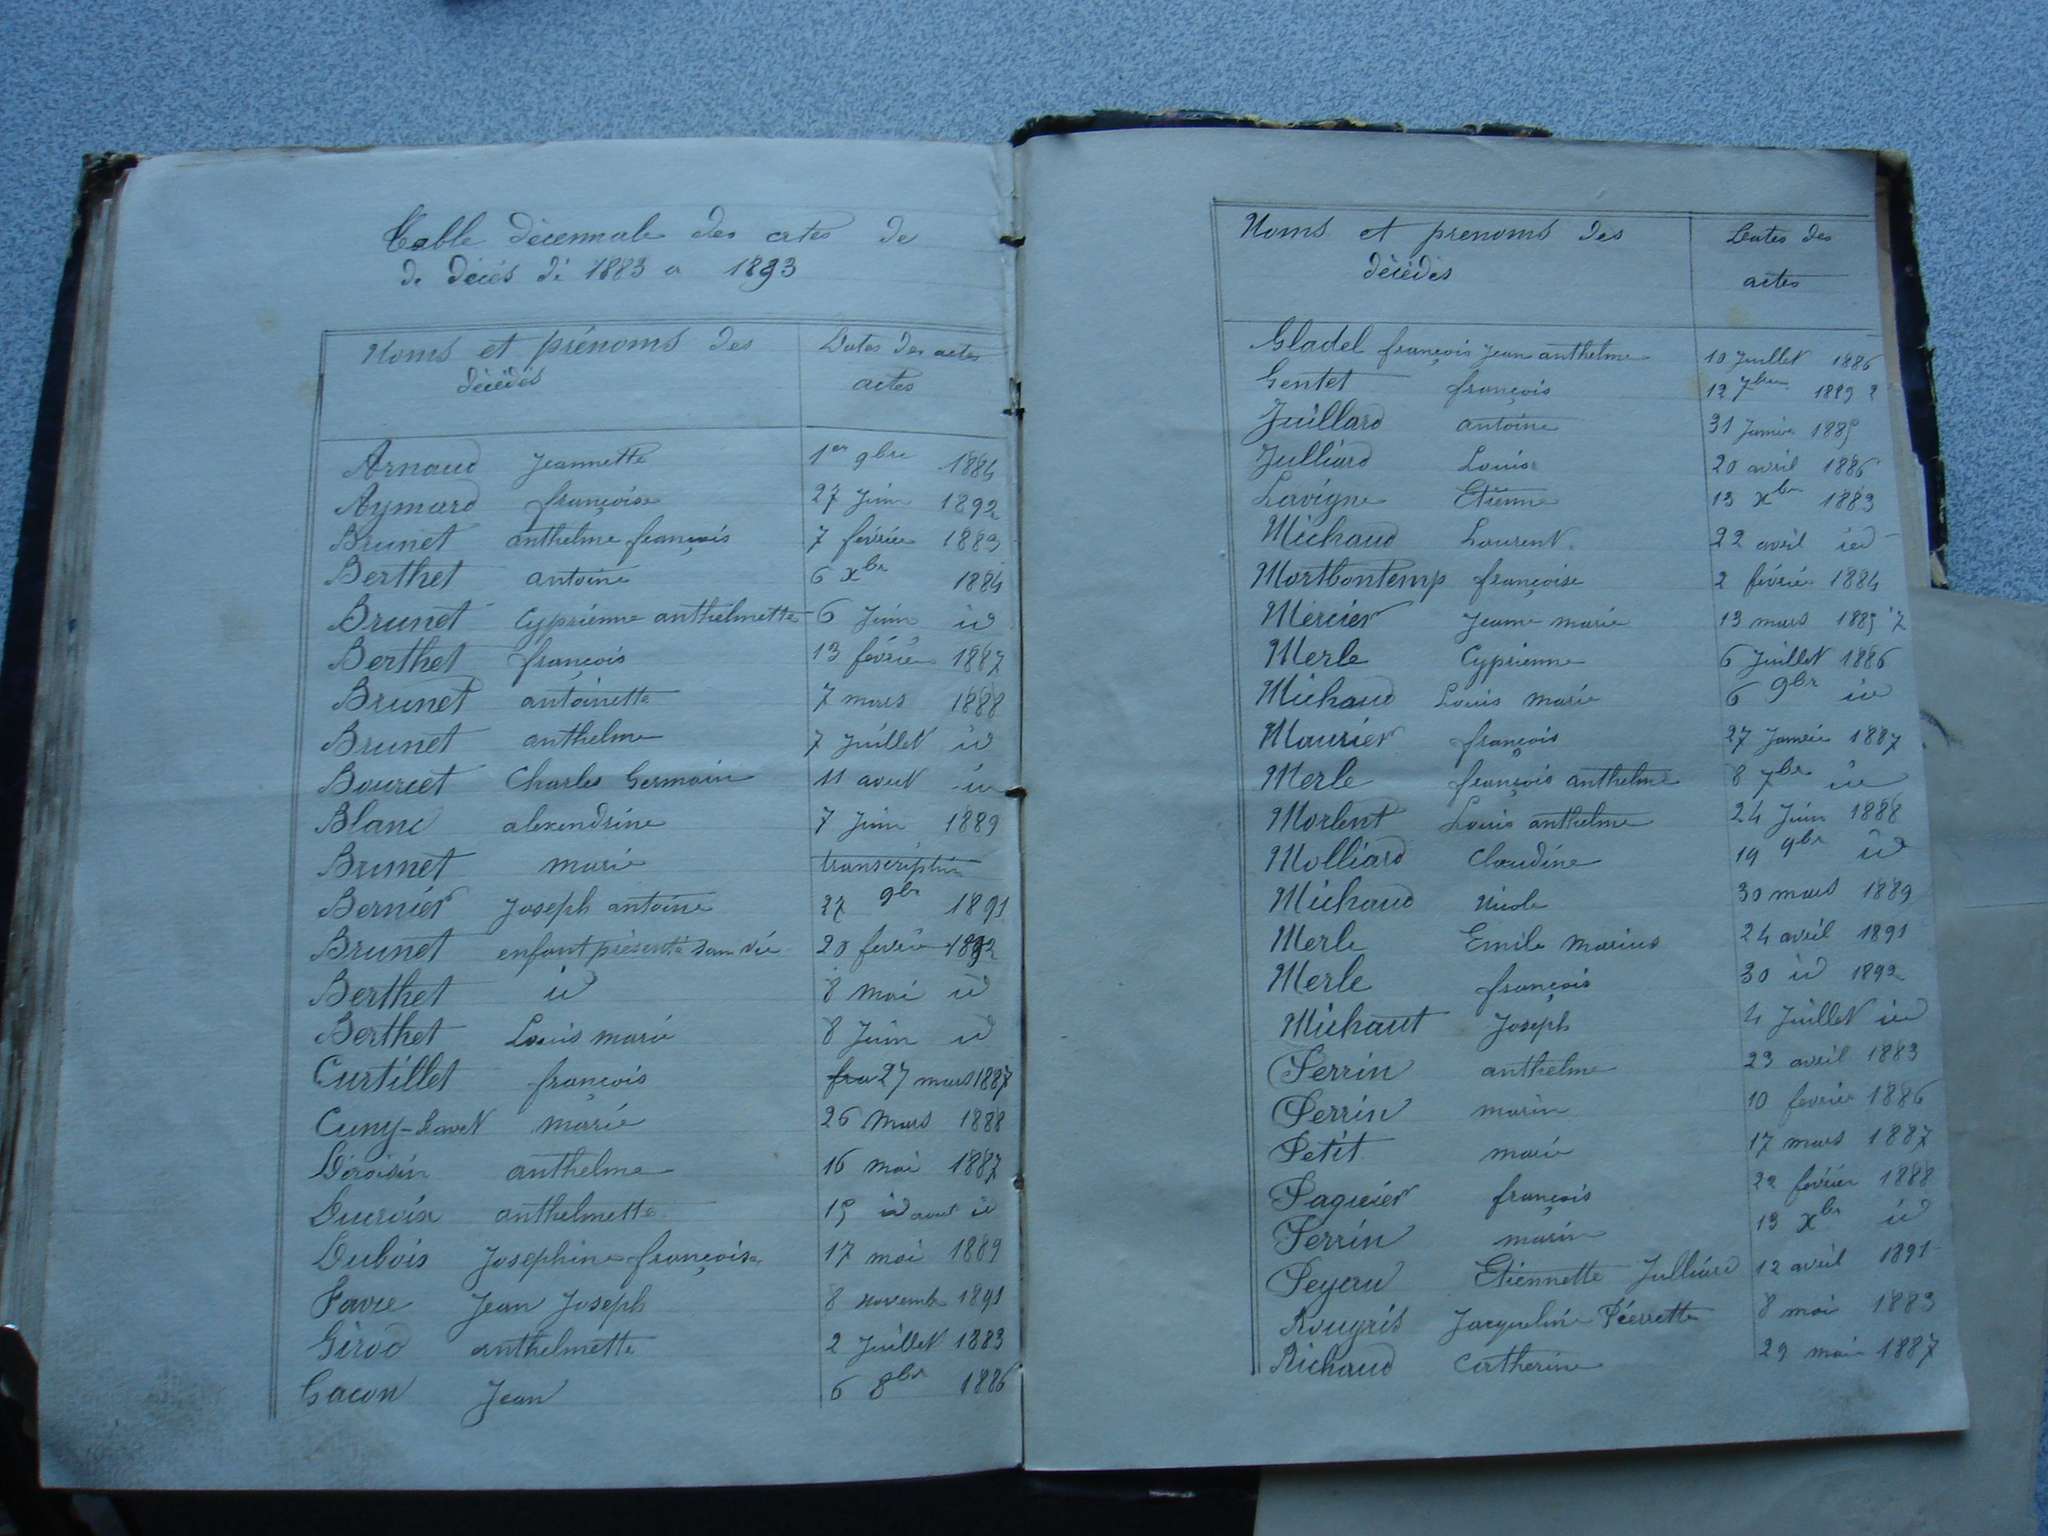 Table décennale des actes de
de décès de 1883 a 1893
Noms et prénoms des
décédés
Dates des actes
actes
Arnaud Jeannette 1er 9bre 1884
Aymard françoise 27 Juin 1892
Brunet anthelme françois 7 février 1883
Berthet antoine 6 xbr 1884
Brunet Cyprienne anthelmette 6 Juin id
Berthet françois 13 février 1887
Brunet antoinette 7 mars 1888
Brunet anthelme 7 Juillet id
Bourcet Charles Germain 11 aout id
Blanc alexendrine 7 Juin 1889
Brunet marie transcription
Bernier Joseph antoine 27 9br 1891
Brunet enfant présenté sans vie 20 fevrier 1892
Berthet id 8 mai id
Berthet Louis marie 8 Juin id
Curtillet françois 27 mars 1887
Cuny-Ravet marie 26 Mars 1888
Diroisin anthelme 16 mai 1887
Ducroix anthelmette 15 aout id
Dubois Josephine françoise 17 mai 1889
Favre Jean Joseph 8 novembre 1891
Girod anthelmette 2 Juillet 1883
Gacon Jean 6 8br 1886
Noms et prenoms des
décédés
Dates des
actes
Gladel françois Jean anthelme 10 Juillet 1886
Gentet françois 12 7bre 1889 2
Juillard antoine 31 Janvier 1885
Julliard Louis 20 avril 1886
Lavigne Etienne 13 xbr 1883
Michaud Laurent 22 avril id
Montbontemp françoise 2 février 1884
Mercier Jeanne marie 13 mars 1885
Merle Cyprienne 6 Juillet 1886
Michaud Louis marie 6 9br id
Maurier françois 27 Janvier 1887
Merle françois anthelme 8 7br id
Morlent Louis anthelme 24 Juin 1888
Molliard Claudine 19 9br id
Michaud Nicole 30 mars 1889
Merle Emile Marius 24 avril 1891
Merle françois 30 id 1892
Michaut Joseph 4 Juillet id
Perrin anthelme 23 avril 1883
Perrin marin 10 fevrier 1886
Petit marie 17 mars 1887
Paguier françois 22 février 1888
Perrin marin 13 xbr id
Peyeau Etiennette Julliard 12 avril 1891
Rougris Jacqueline Pierrette 8 mai 1883
Richaud Catherine 29 mai 1887